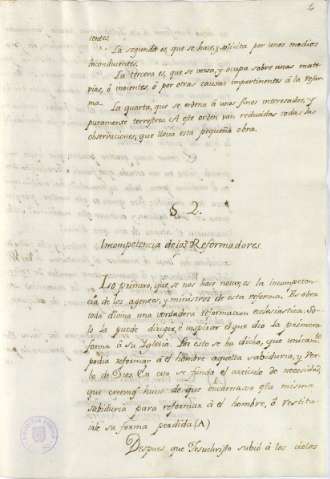 tentes.
La segunda es, que se hace, y solicita por unos medios
inconducentes.
La tercera es, que se versa, y ocupa sobre unas mate-
rias, ó inocentes, ó por otras causas impertinentes á la refor-
ma.
La quarta, que se ordena á unos fines interesados, y
puramente terrestres. A este orden van reducidas todas las
observaciones, que lleva esta pequeña obra.
§. 2.
Incompetencia de los Reformadores
Lo primero, que se nos hace notar, es la incompeten-
cia de los agentes, y ministros de esta reforma. Es obra
toda divina una verdadera reformacion eclesiastica. So-
lo la puede dirigir, é inspirar el que dio la primera
forma á su Iglesia. Por esto se ha dicho, que unicam.
podia reformar á el hombre aquella sabiduria, y
de Dios. En esto se funda el articulo de necesidad,
que creemos hubo de que encarnara esta misma
sabiduria para reformar á el hombre, ó restituir-
le su forma perdida (A)
Despues que Jesuchristo subió á los cielos